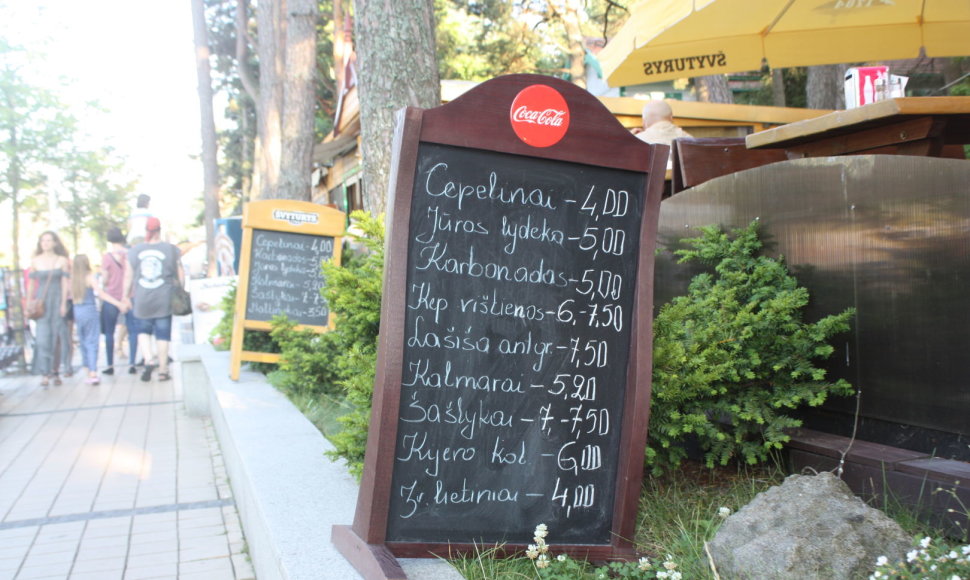 ŠVYTURYS
Coca-Cola
Cepelinai - 4,00
Jūros lydeka - 5,00
Karbonadas - 5,00
Kep vištienos - 6,-7,50
Lašiša ant gr. - 7,50
Kalmarai - 5,20
Šašlykai - 7,-7,50
Kijevo kot. - 6,00
Žr. lietiniai - 4,00
ŠVYTURYS
Cepelinai - 4,00
Karbonadas - 5,00
Jūros lydeka
Kalmarai - 5,20
Šašlykai - 7-7
3,50